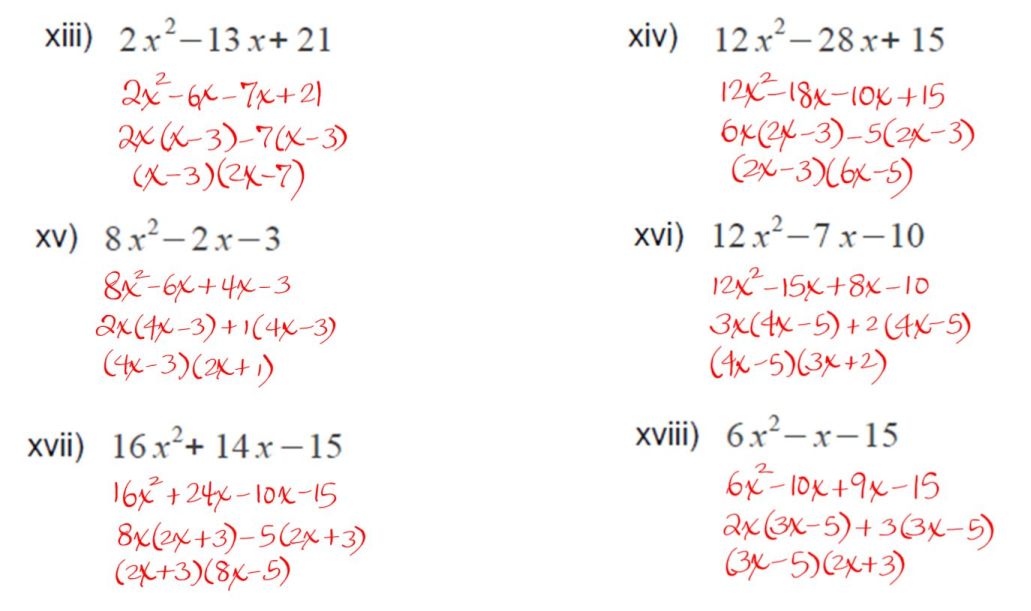 xiii) 2x²−13x+21
2x²-6x-7x+21
2x(x-3)-7(x-3)
(x-3)(2x-7)
xiv) 12x²−28x+15
12x²-18x-10x+15
6x(2x-3)-5(2x-3)
(2x-3)(6x-5)
xv) 8x²−2x−3
8x²-6x+4x-3
2x(4x-3)+1(4x-3)
(4x-3)(2x+1)
xvi) 12x²−7x−10
12x²-15x+8x-10
3x(4x-5)+2(4x-5)
(4x-5)(3x+2)
xvii) 16x²+14x−15
16x²+24x-10x-15
8x(2x+3)-5(2x+3)
(2x+3)(8x-5)
xviii) 6x²−x−15
6x²-10x+9x-15
2x(3x-5)+3(3x-5)
(3x-5)(2x+3)